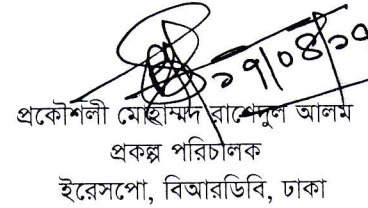 ১৭/০৪/২০
প্রকৌশলী মোহাম্মদ রাশেদুল আলম
প্রকল্প পরিচালক
ইরেসপো, বিআরডিবি, ঢাকা